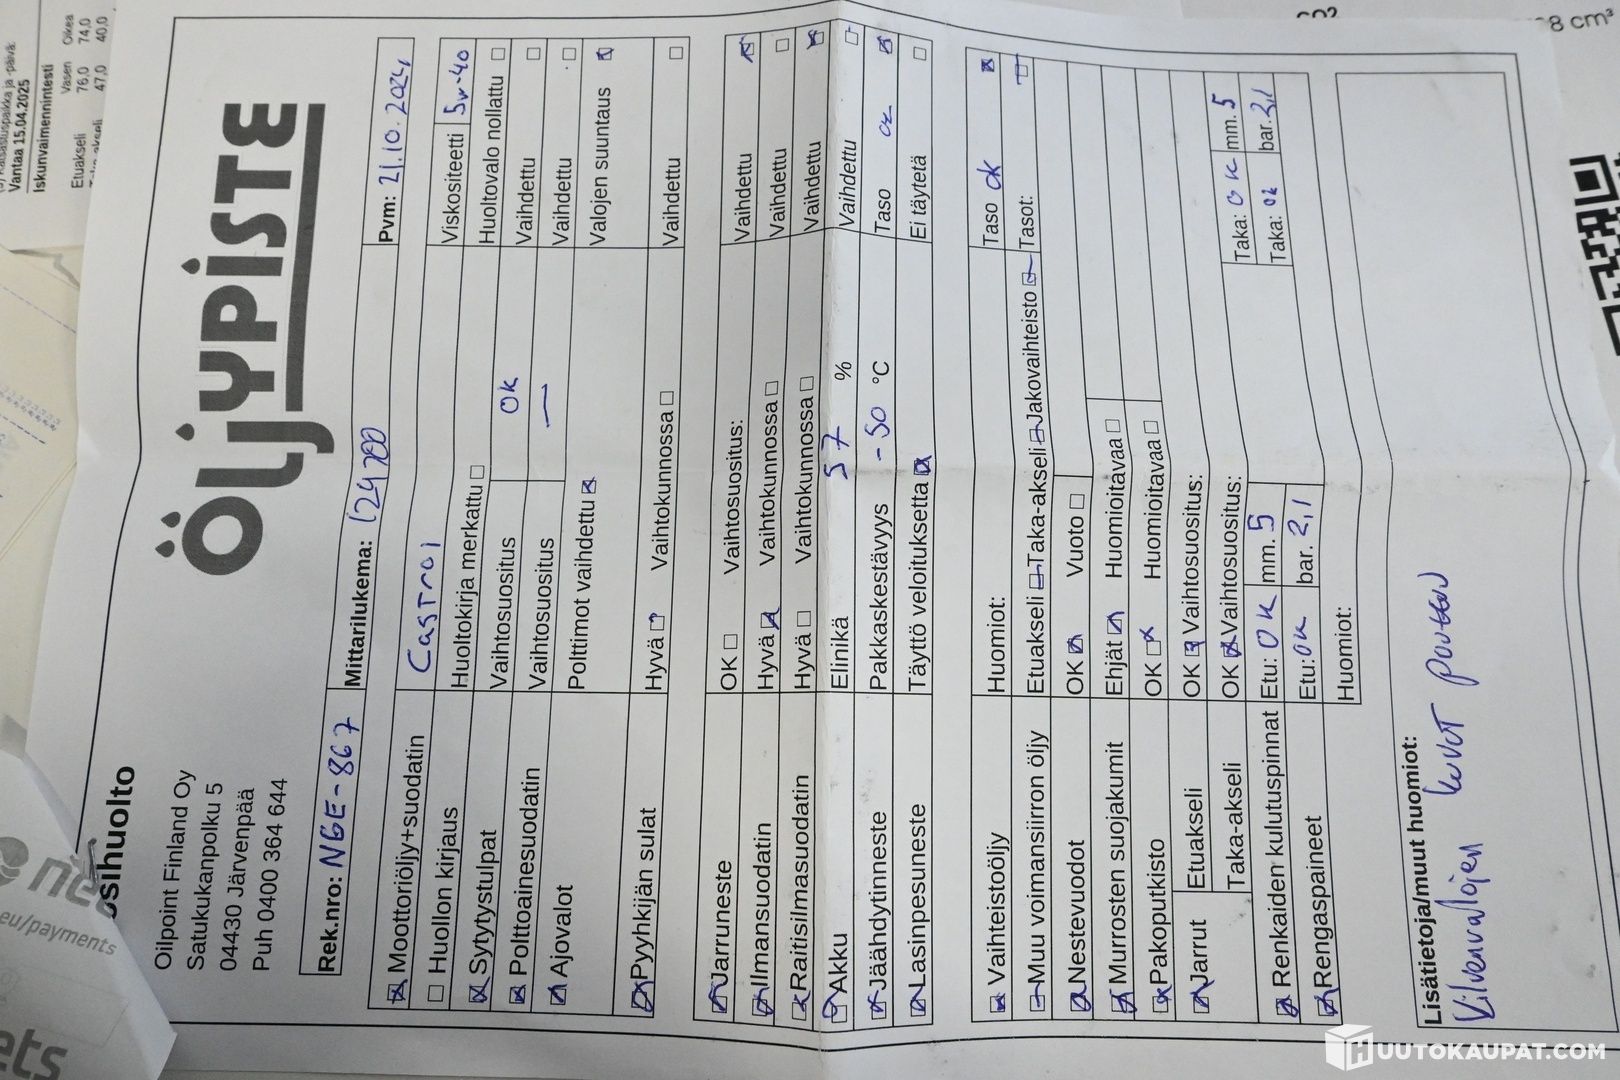 osihuolto
ÖLJYPISTE
Oilpoint Finland Oy
Satukukanpolku 5
04430 Järvenpää
Puh 0400 364 644
Rek.nro: NGE-867 Mittarilukema: 124700 Pvm: 21.10.2024
Moottoriöljy+suodatin Castrol Viskositeetti 5w-40
Huollon kirjaus Huoltokirja merkattu Huoltovalo nollattu
Sytytystulpat Vaihtosuositus OK Vaihdettu
Polttoainesuodatin Vaihtosuositus — Vaihdettu
Ajovalot Polttimot vaihdettu Vaihdettu
Valojen suuntaus
Pyyhkijän sulat Hyvä Vaihtokunnossa Vaihdettu
Jarruneste OK Vaihtosuositus: Vaihdettu
Ilmansuodatin Hyvä Vaihtokunnossa Vaihdettu
Raitisilmasuodatin Hyvä Vaihtokunnossa Vaihdettu
Akku Elinikä 57 % Vaihdettu
Jäähdytinneste Pakkaskestävyys -50 °C Taso ok
Lasinpesuneste Täyttö veloituksetta Ei täytetä
Vaihteistoöljy Huomiot: Taso ok
Muu voimansiirron öljy Etuakseli Taka-akseli Jakovaihteisto Tasot:
Nestevuodot OK Vuoto
Murrosten suojakumit Ehjät Huomioitavaa
Pakoputkisto OK Huomioitavaa
Jarrut Etuakseli OK Vaihtosuositus:
Taka-akseli OK Vaihtosuositus:
Renkaiden kulutuspinnat Etu: OK mm. 5 Taka: OK mm. 5
Rengaspaineet Etu: OK bar. 2,1 Taka: ok bar. 2,1
Huomiot:
Lisätietoja/muut huomiot:
Kilvenvalojen kuvut puuttuu
Vantaa 15.04.2025
Iskunvaimennintesti
Vasen Oikea
Etuakseli 76,0 74,0
47,0 40,0
eu/payments
ets
8 cm³
HUUTOKAUPAT.COM